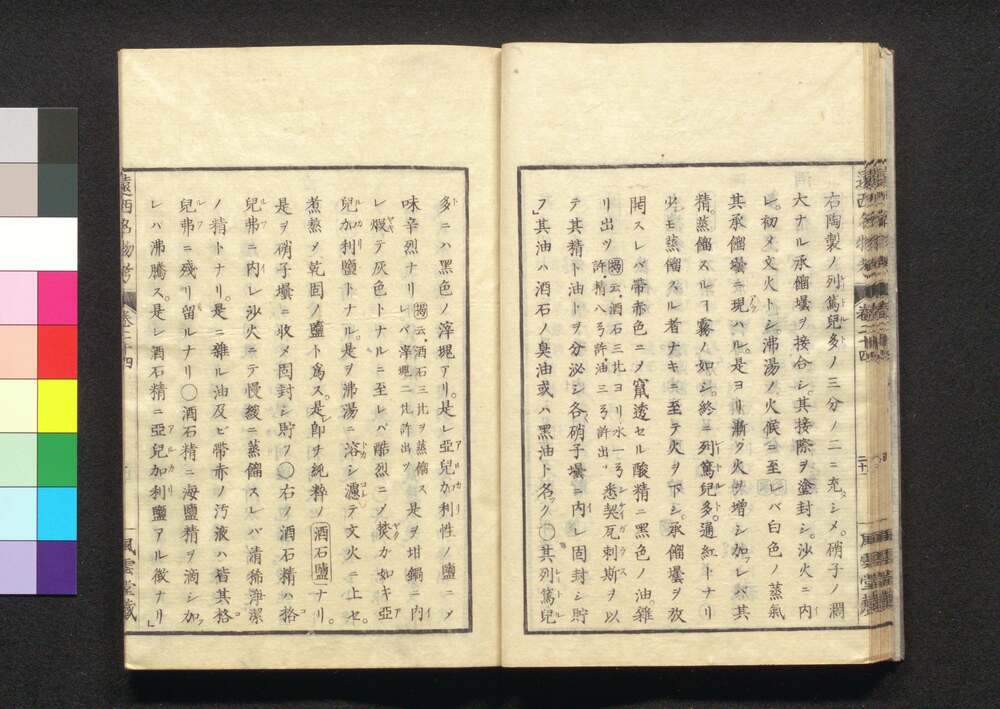 右陶製ノ列篤兒多ノ三分ノ二ニ充シメ。硝子ノ濶
大ナル承餾壜ヲ接合シ。其接際ヲ塗封シ。沙火ニ内
レ。初メ文火トシ沸湯ノ火候ニ至レバ白色ノ蒸氣
其承餾壜ニ現ハル。是ヨリ漸ク火ヲ増シ加フレバ其
精。蒸餾スルヿ霧ノ如シ。終ニ列篤兒多。通紅トナリ
少モ蒸餾スル者ナキニ至テ火ヲ下シ。承餾壜ヲ放
開スレバ帯赤色ニシテ竄透セル酸精ニ黒色ノ油雜
リ出ツ
云、酒石三
ヨリ水一
許、精八
許、油三
許出ヅ
悉契瓦刺斯ヲ以
テ其精ト油トヲ分泌シ各硝子壜ニ内レ固封シ貯
フ其油ハ酒石ノ臭油或ハ黒油ト名ク○其列篤兒
多ニハ黒色ノ滓塊アリ。是レ亞兒加利性ノ鹽ニシテ
味辛烈ナリ
云、酒石三
ヲ蒸餾ス
レバ滓塊二
許出ヅ
是ヲ坩鍋ニ内
レ煅テ灰色トナルニ至レバ酷烈ニシテ焚カ如キ亞
兒加利鹽トナル。是ヲ沸湯ニ溶シ濾テ文火ニ上セ。
煮熬シテ乾固ノ鹽ト為ス。是レ即チ純粋ノ酒石鹽ナリ。
是ヲ硝子壜ニ收メ固封シ貯フ○右ノ酒石精ハ格
兒弗ニ内レ沙火ニテ慢緩ニ蒸餾スレバ清稀浄潔
ノ精トナリ。是ニ雜ル油及ビ帯赤ノ汚液ハ皆其格
兒弗ニ残リ留ルナリ○酒石精ニ海鹽精ヲ滴シ加
レバ沸騰ス。是レ酒石精ニ亞兒加利鹽アル徴ナリ」
遠西名物考
巻二十四
風雲堂藏